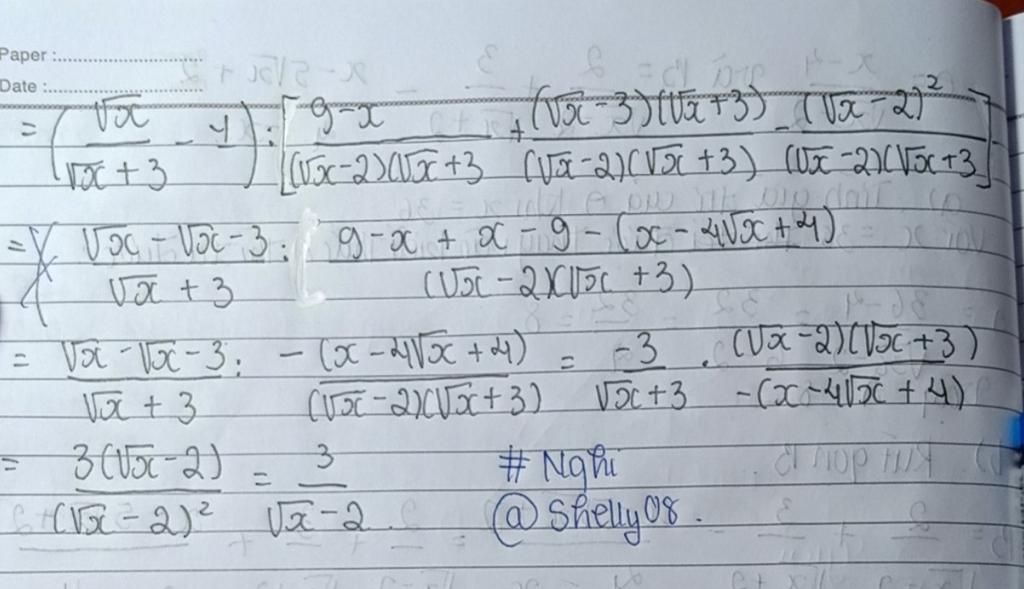 Paper :..............................
Date :..............................
= (√x/(√x + 3) - 1) : [(9-x)/((√x-2)(√x+3) + (√x-3)(√x+3)/((√x-2)(√x+3)) - (√x-2)²/((√x-2)(√x+3)]
= (√x - √x - 3)/(√x + 3) : (9 - x + x - 9 - (x - 4√x + 4))/((√x - 2)(√x + 3))
= (√x - √x - 3)/(√x + 3) : -(x - 4√x + 4)/((√x - 2)(√x + 3)) = -3/(√x + 3) . (√x - 2)(√x + 3)/-(x - 4√x + 4)
= 3(√x - 2)/(√x - 2)² = 3/(√x - 2) .
# Nghi
@ Shelly08 .